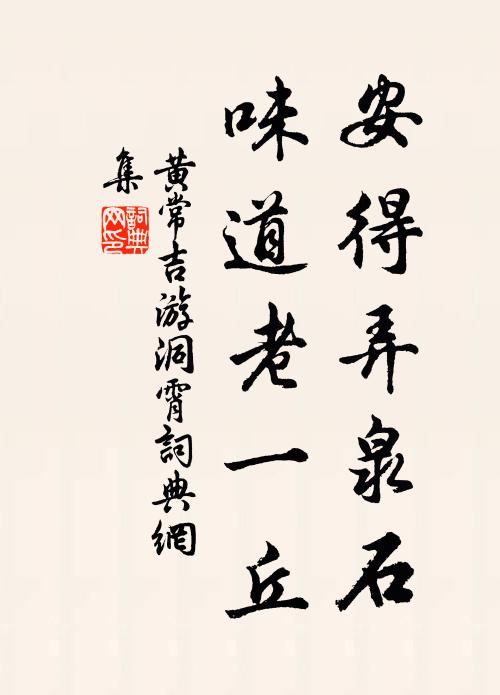 安得弄泉石
味道老一丘
黄常吉游洞霄詞典網
集
詞典网印